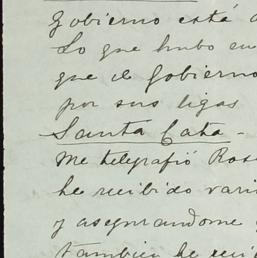 Gobierno está
Lo que hubo en
que el Gobierno
por sus ligas
Santa Cata-
Me telegrafió Rosa
he recibido vari
y asegurandome
tambien he reci